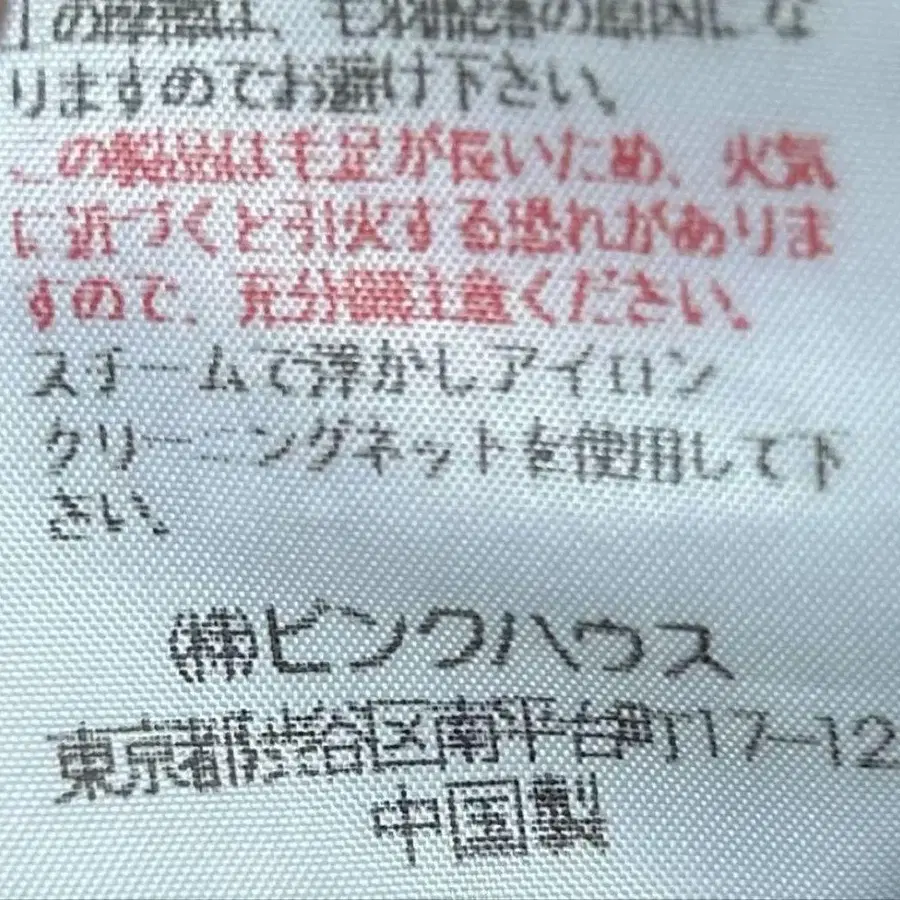 の摩擦は、毛羽脱落の原因にな
りますのでお避け下さい。
の製品は毛足が長いため、火気
に近づくと引火する恐れがありま
すので、充分御注意ください。
スチームで浮かしアイロン
クリーニングネットを使用して下
さい。
㈱ピンクハウス
東京都渋谷区南平台町17-12
中国製